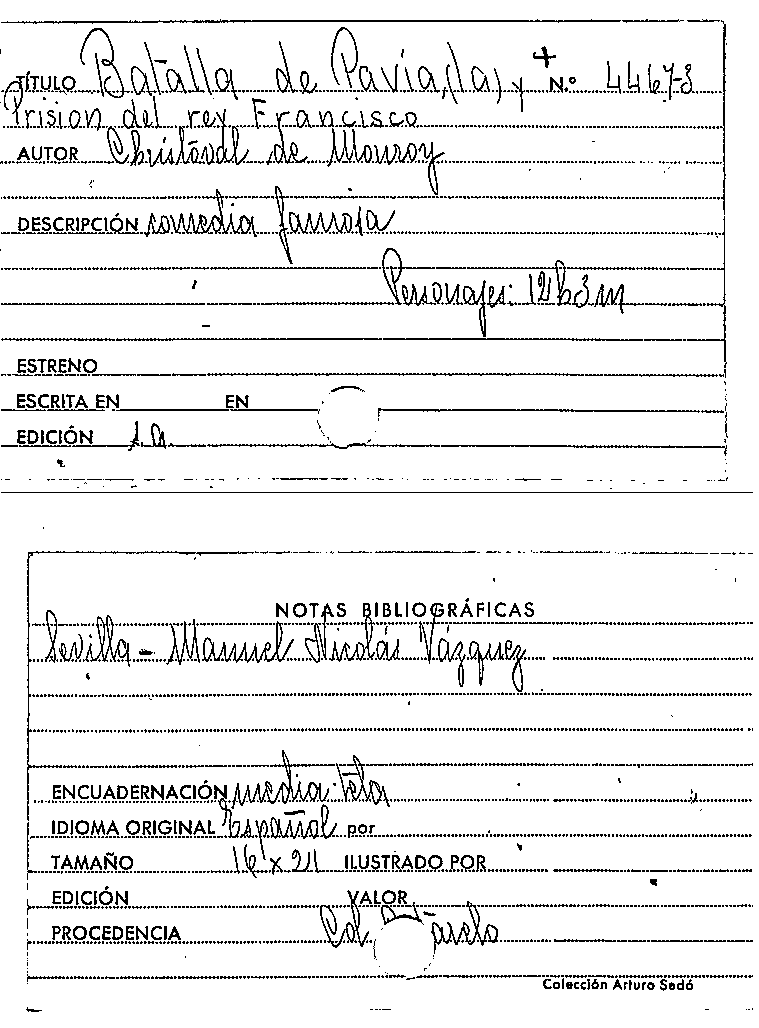 TÍTULO Batalla de Pavia,(la) y + N.º 44673
Prision del rey Francisco
AUTOR Christóval de Monroy
DESCRIPCIÓN comedia famosa
Personajes: 12h3m
ESTRENO
ESCRITA EN EN
EDICIÓN s.a.
NOTAS BIBLIOGRÁFICAS
Sevilla - Manuel Nicolás Vázquez
ENCUADERNACIÓN media tela
IDIOMA ORIGINAL Español por
TAMAÑO 16 x 21 ILUSTRADO POR
EDICIÓN VALOR
PROCEDENCIA Col.
Colección Arturo Sedó